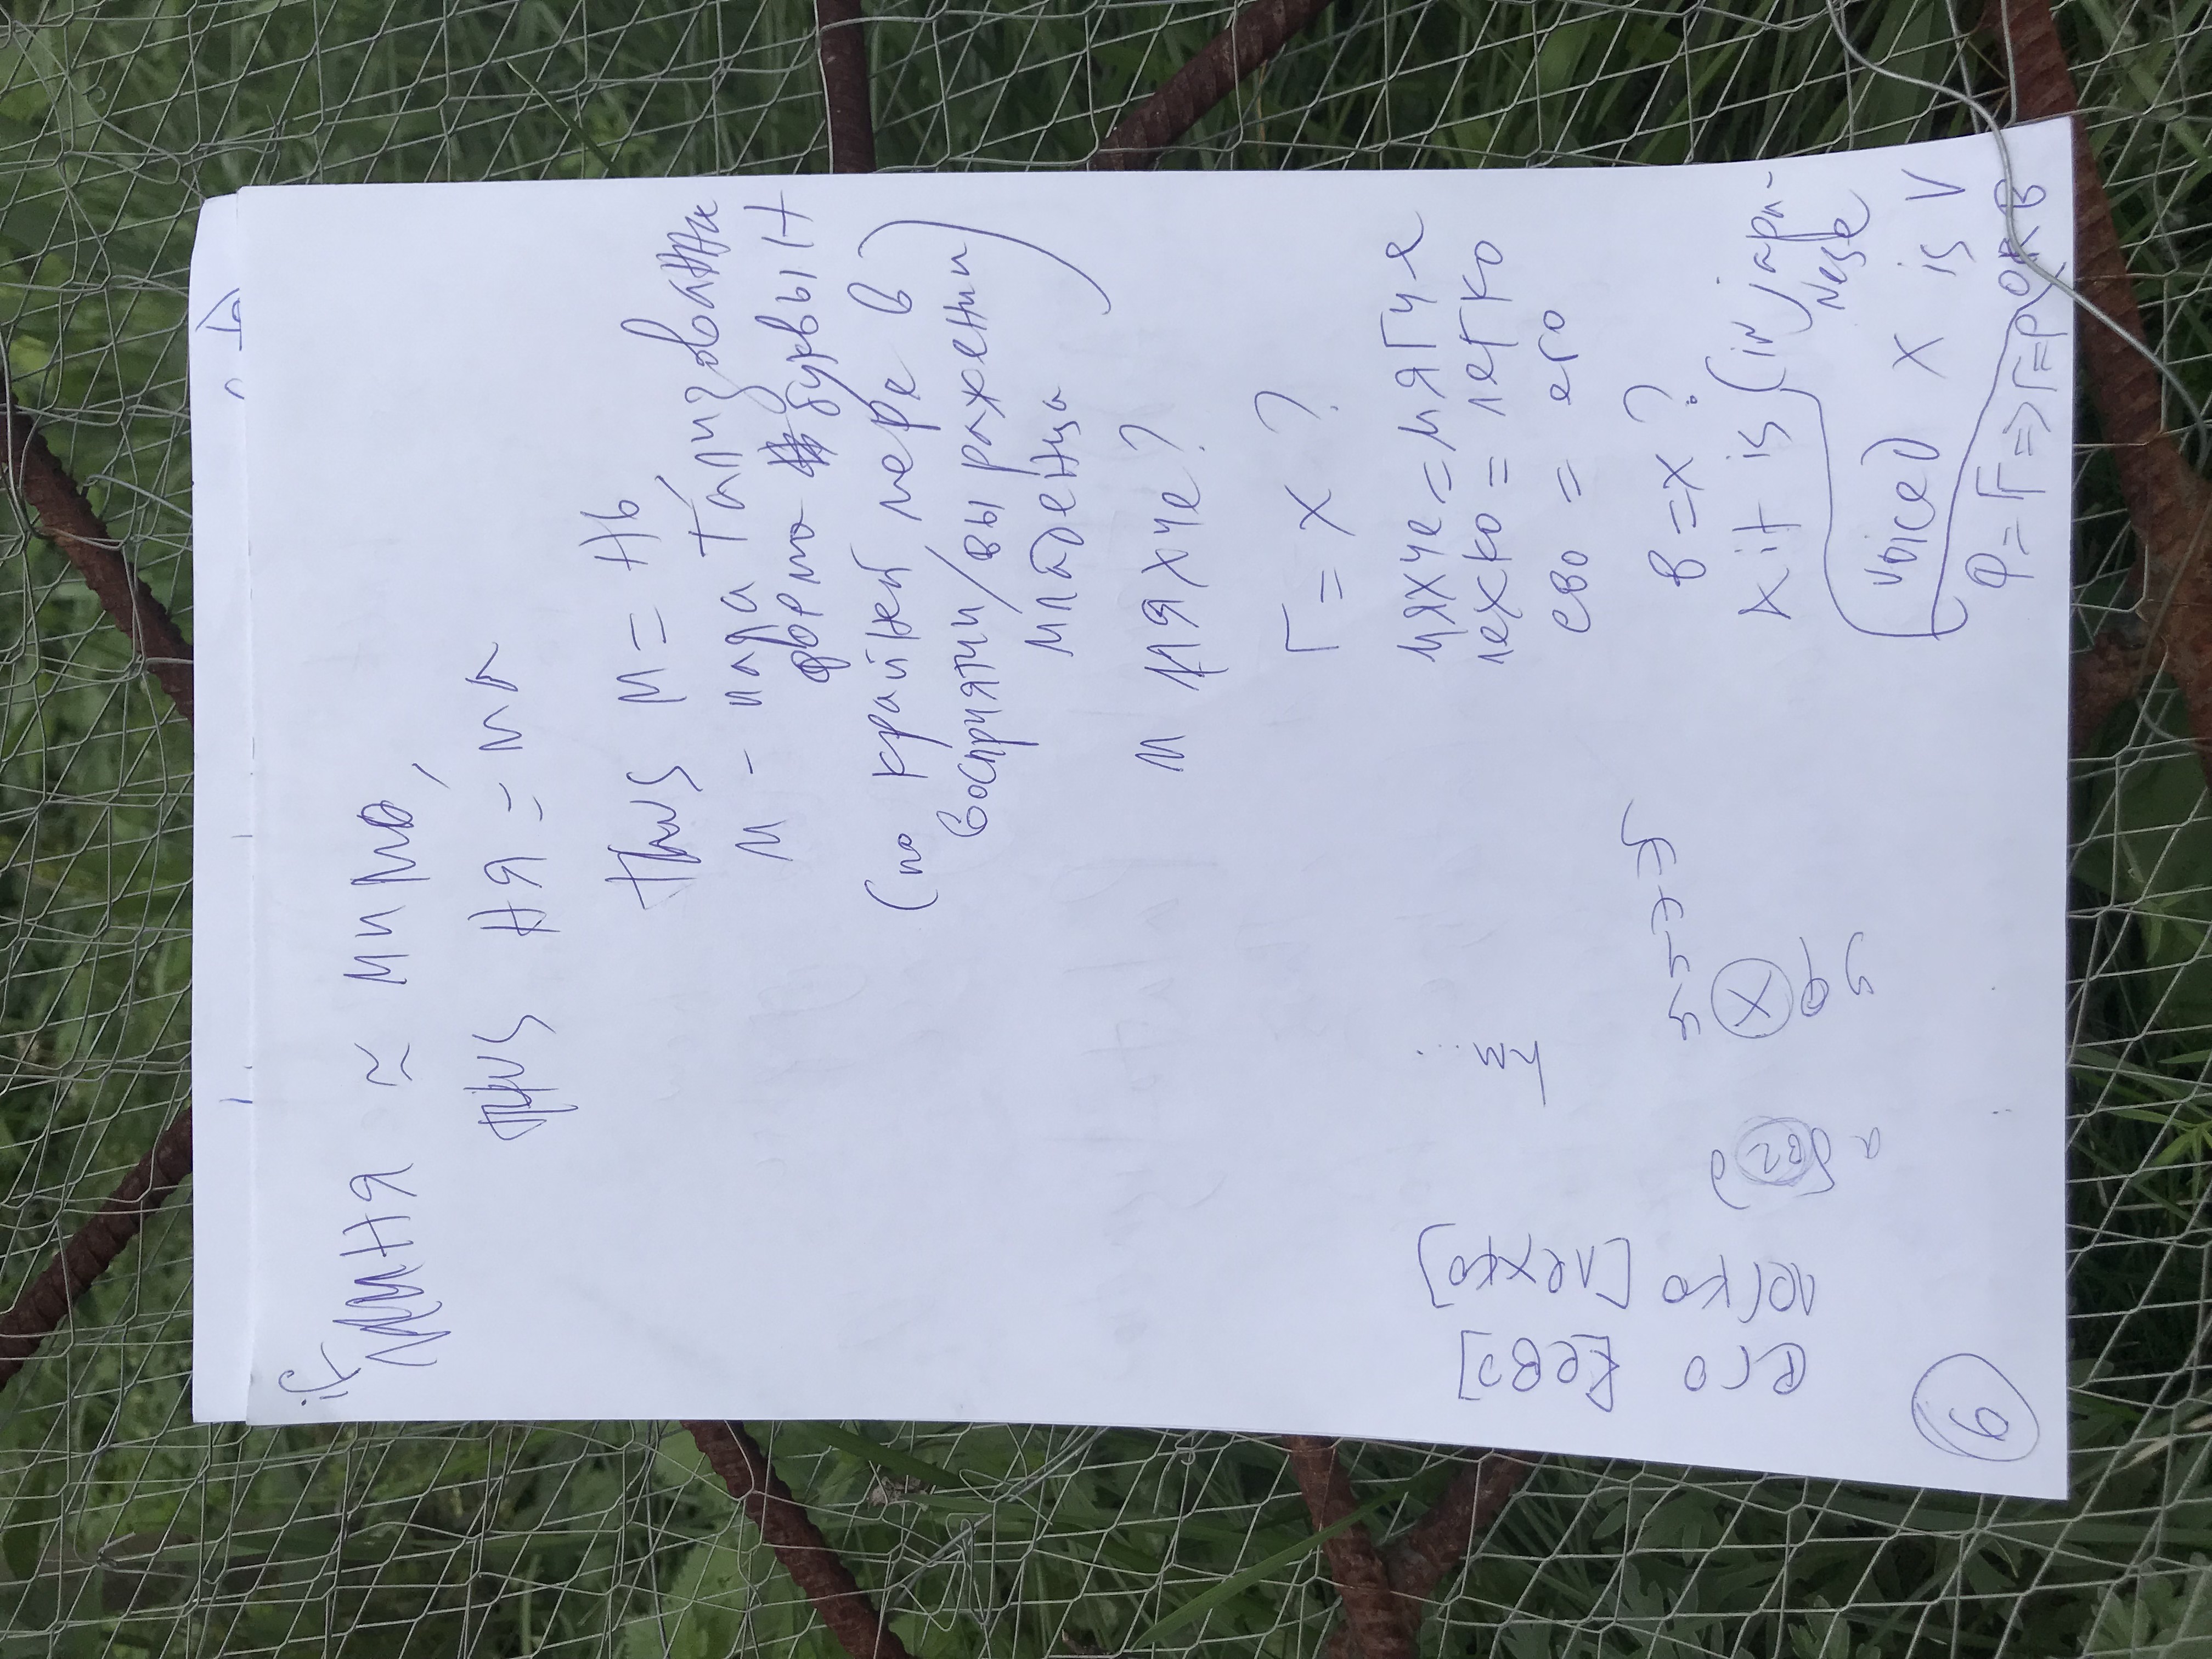 if
миня ≈ мима,
thus ня = ма
thus м = нь,
м - палатализована
форма буквы Н
(по крайней мере в
восприятии/выражении
младенца)
м мяхче?
Г = Х ?
мяхче = мягче
лехко = легко
ево = его
в = х ?
it is (in japa-
nese
voiced X is V
Ф = F => F = P OR B
его [ево]
легко [лехко]
hm...
6